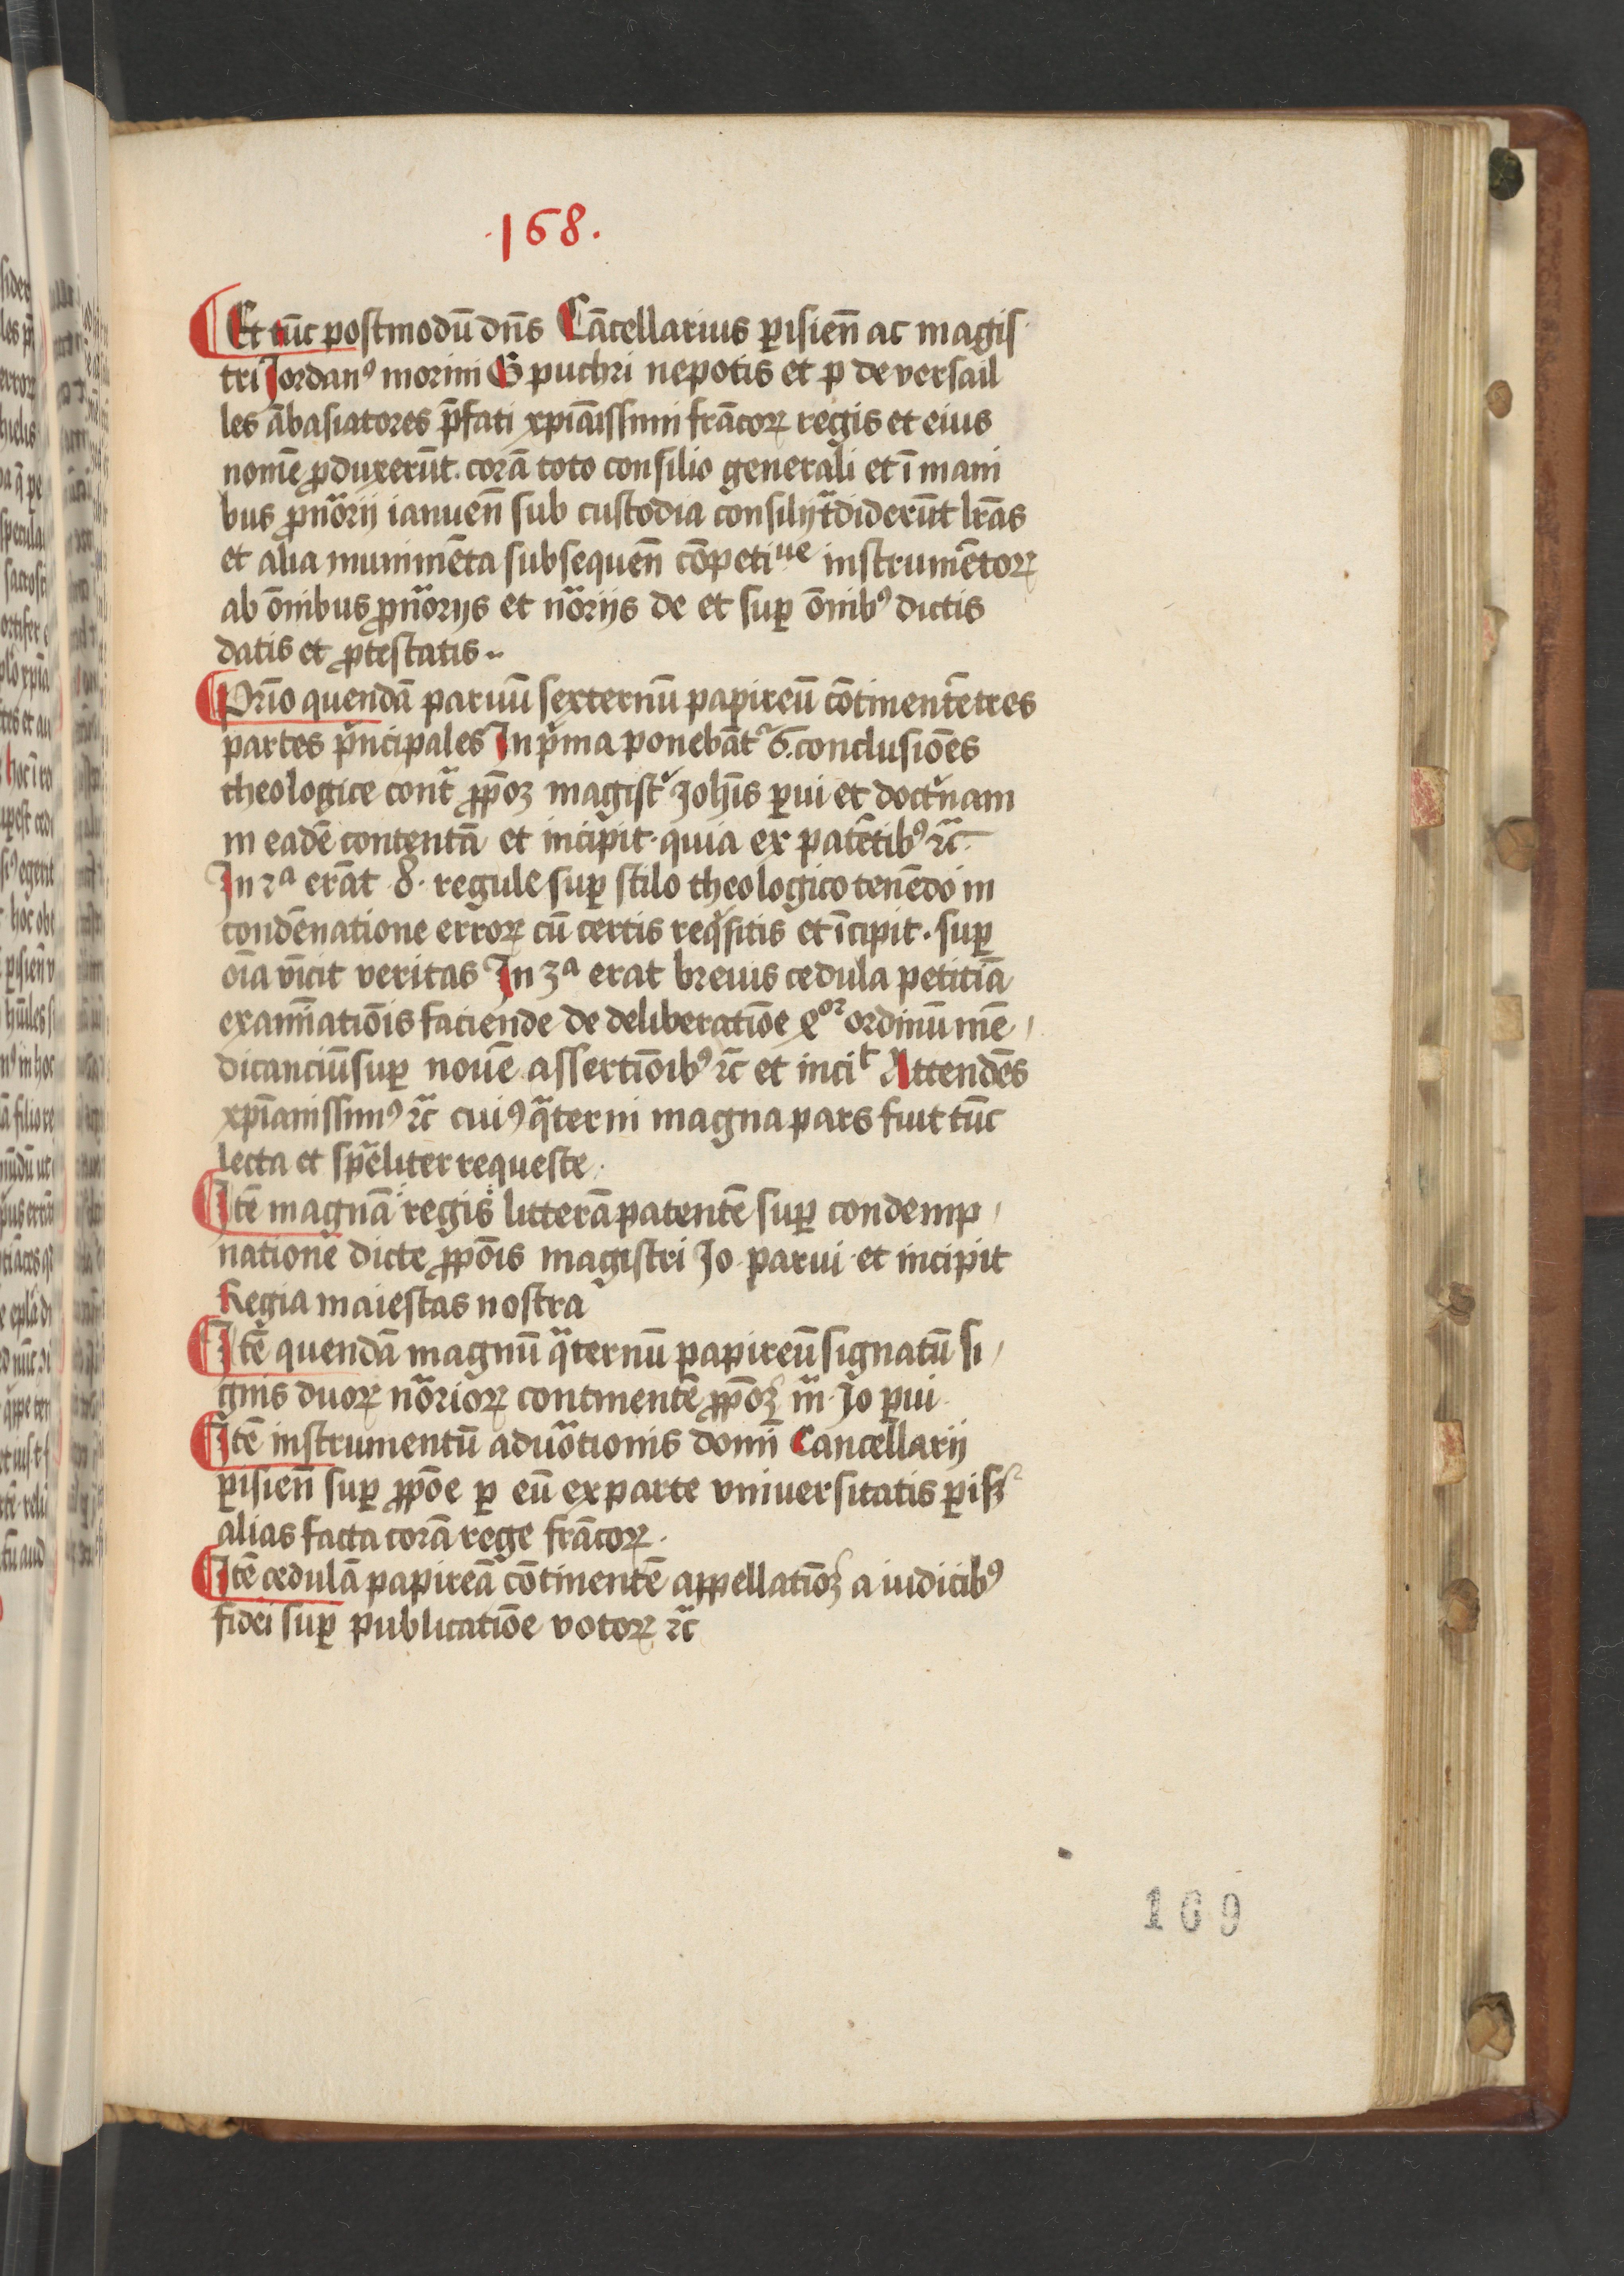 .168.
Et tu̅c postmodu̅ dn̅s Ca̅cellarius ꝑisien̅ ac magis
tri Jordanꝰ morini G puchri nepotis et p de versail
les a̅basiatores p̅fati xpia̅issimi fra̅coꝝ regis et eius
nomē ꝓduxeru̅t. cora̅ toto consilio generali et ı̅ mani
bus ꝓno̅rij ianuen̅ sub custodia consilij t̅dideru̅t lr̅as
et alia munime̅ta subsequen̅ co̅petiue instrume̅toꝝ
ab o̅nibus ꝓno̅rijs et no̅rijs de et suꝑ o̅nibꝰ dictis
datis et ꝓtestatis..
Pri̅o quenda̅ paruu̅ sexternu̅ papireu̅ co̅tinente̅ tres
partes pⁱncipales In pⁱma poneba̅t᷑ 6. conclusio̅es
theologice cont̅ ꝓpo̅ꝫ magist᷑ Joh̅is ꝑui et doctⁱnam
in eade̅ contenta̅ et incipit. quia ex pate̅tibꝰ ⁊c̅.
In 2ᵃ era̅t .8. regule suꝑ stilo theologico tene̅do in
conde̅natione erroꝝ cu̅ certis reqⁱsitis et ı̅cipit. suꝑ
oı̅a vı̅cit veritas In 3ᵃ erat breuis cedula petitı̅a
examı̅atio̅is faciende de deliberatio̅e 4oꝝ ordinu̅ me̅
dicanciu̅ suꝑ noue̅ assertio̅ibꝰ ⁊c̅ et inciᵗ Attende̅s
xpı̅anissimꝰ ⁊c̅ cuiꝰ qᵃterni magna pars fuit tu̅c
lecta et sp̅eliter requeste.
Ite̅ magna̅ regis littera̅ patente̅ suꝑ condemp
natione dicte ꝓpo̅is magistri Jo. parui et incipit
Regia maiestas nostra
Ite̅ quenda̅ magnu̅ qᵃternu̅ papireu̅ signatu̅ si
gnis duoꝝ no̅rioꝝ continente̅ ꝓpo̅ꝫ m̅ Jo ꝑui
Ite̅ instrumentu̅ aduo̅tionis domi̅ Cancellarij
ꝑisien̅ suꝑ ꝓpo̅e ꝑ eu̅ ex parte vniuersitatis ꝑis̅
alias facta cora̅ rege fra̅coꝝ.
Ite̅ cedula̅ papirea̅ co̅tinente̅ appellatio̅ꝫ a iudicibꝰ
fidei suꝑ publicatio̅e votoꝝ ⁊c̅
169